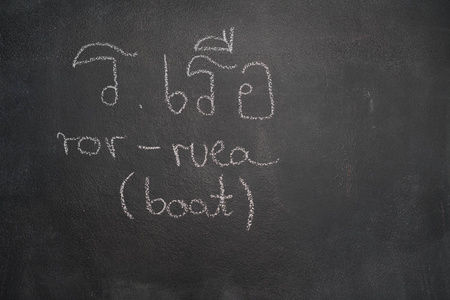 ร.เรือ
ror-ruea
(boat)